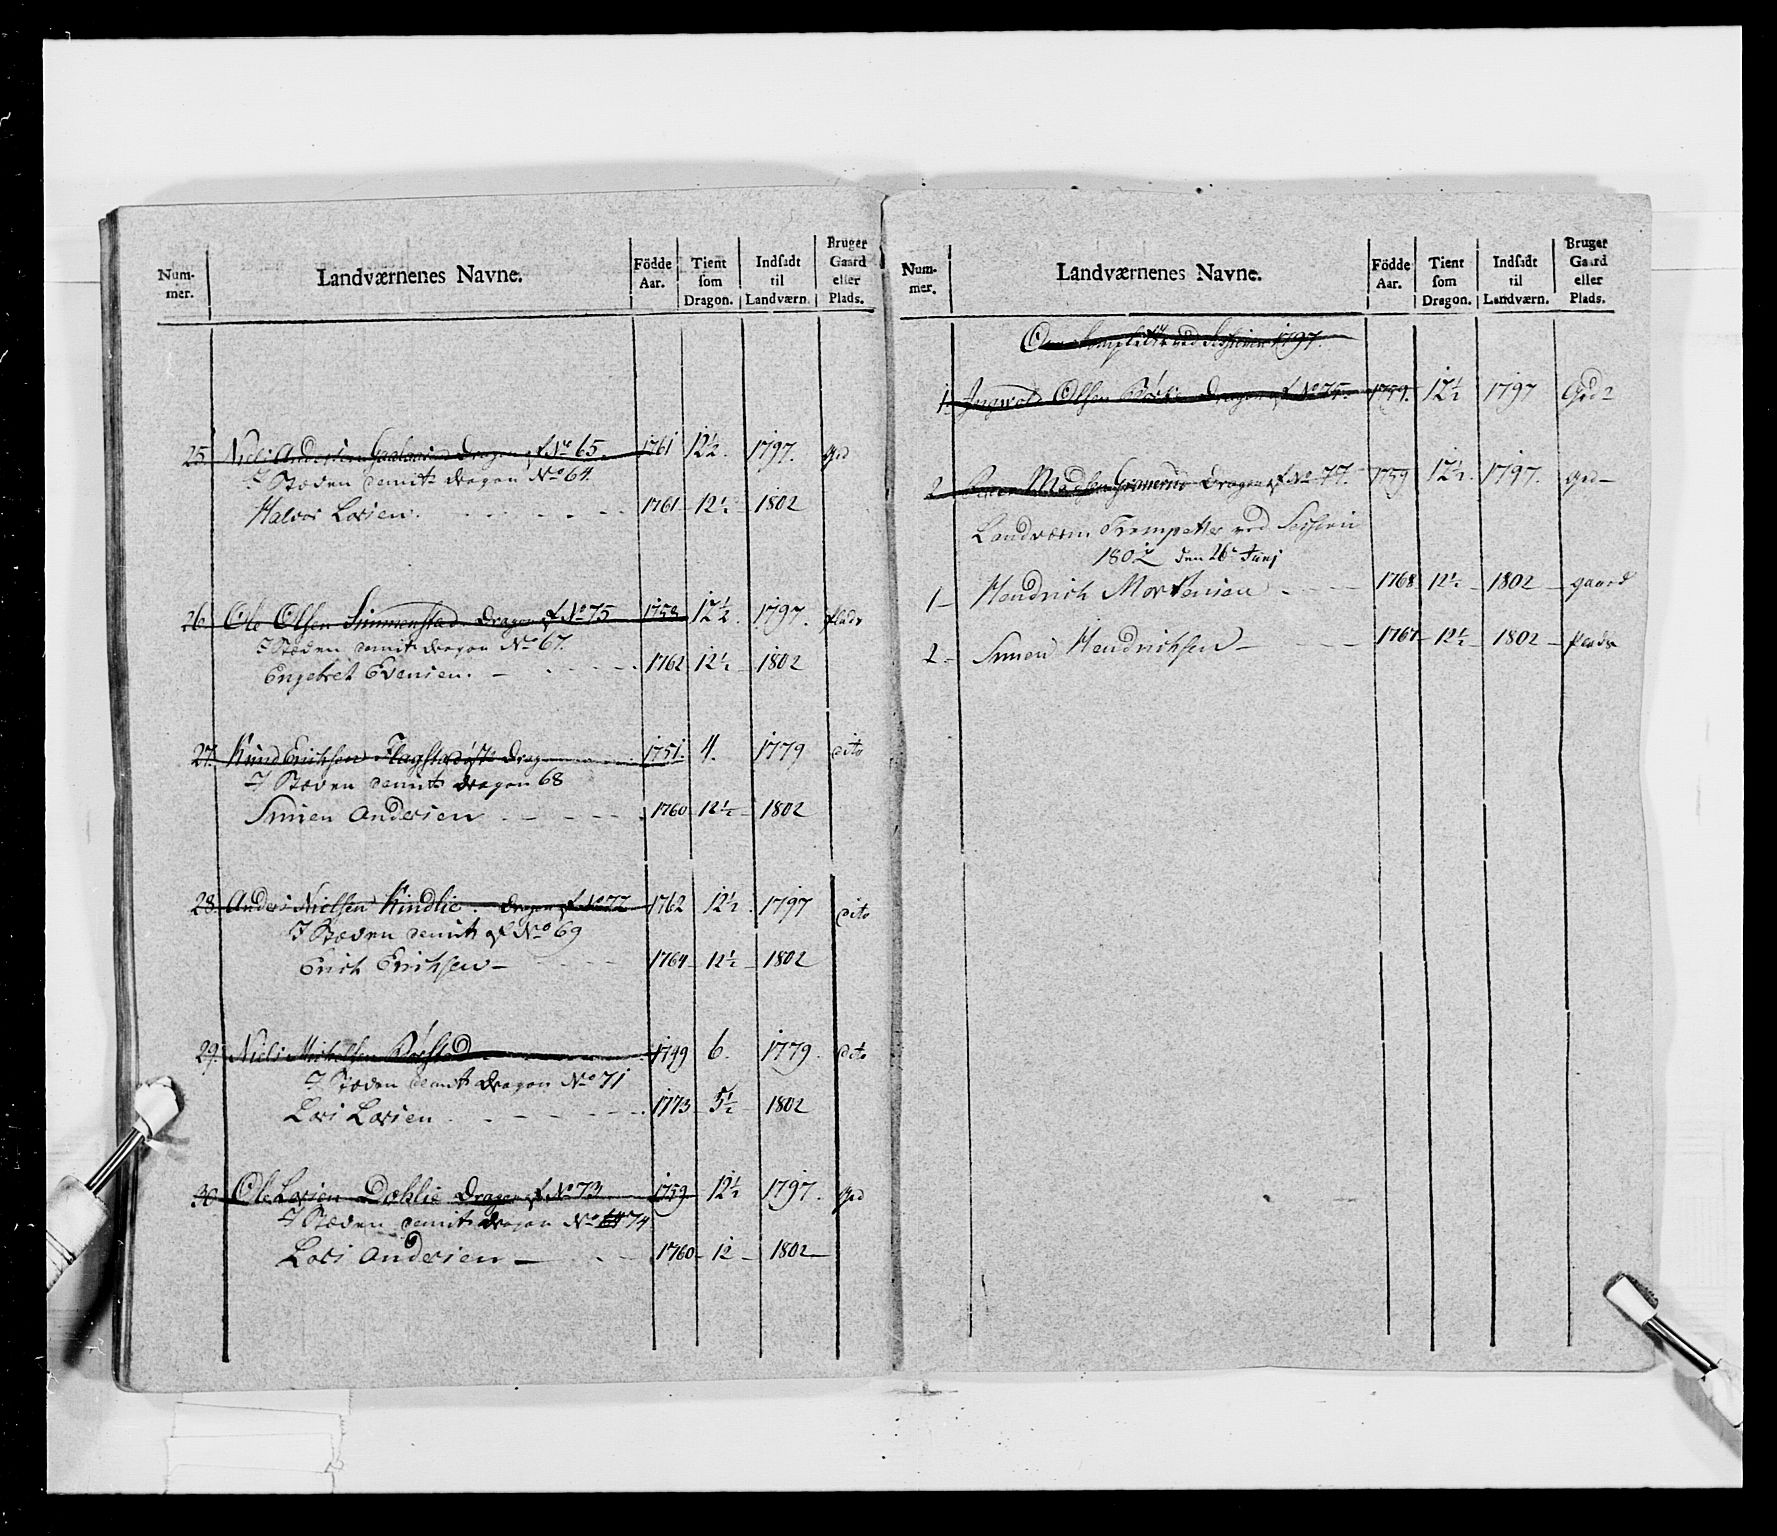 Num-
mer.
Landværnenes Navne.
Födde
Aar.
Tient
som
Dragon.
Indsadt
til
Landværn.
Bruger
Gaard
eller
Plads.
25. Niels Andersen Dragon af No 65. 1761 12½. 1797. Grd
I Stæden demit: dragon No 64.
Halvor Larsen. 1761 12½ 1802
26. Ole Olsen Simmenstad Dragon af No 75 1758 12½. 1797. plads
I Stæden demit: dragon No 67.
Engebret Evensen. 1762 12½ 1802
27. Knud Erichsen Flagstad Drag 1751. 4. 1779 dito
I Stæden demit: dragon 68
Simen Andersen 1760 12½ 1802
28. Anders Nielsen Kindlie. Dragon af No 72 1762 12½. 1797 dito
I Stæden demit: af No 69
Erich Erichsen 1764 12½ 1802
29. Niels Michelsen Rørstad 1749 6. 1779. dito
I Stæden demit: dragon No 71
Lars Larsen 1773 5½ 1802
30. Ole Larsen Dæhlie Dragon af No 73 1759 12½ 1797. Grd
I Stæden demit: dragon No 74.
Lars Andersen 1760 12 1802
Num-
mer.
Landværnenes Navne.
Födde
Aar.
Tient
som
Dragon.
Indsadt
til
Landværn.
Bruger
Gaard
eller
Plads.
ved Sessionen 1797.
1. Ingvold Olsen Dragon af No 75. 12½ 1797 Grd
2 Peder Madsen Dragon af No 77. 1759 12½. 1797. Grd
Landværn Trompetter ved Session
1802 den 26de Junj
1 Hendrich Mortensen 1768 12½ 1802 gaard
2 Simen Hendrichsen 1767 12½ 1802 plads